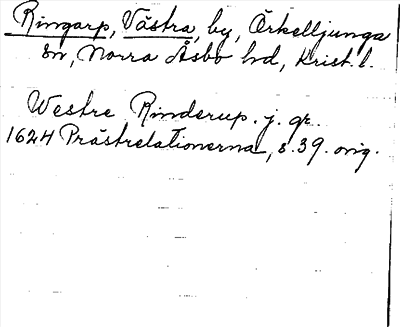 Ringarp, Västra, by, Örkelljunga
sn, Norra Åsbo hd, Krist. l.
Westre Rinderup. j. gr.
1624 Prästrelationerna, s. 39. orig.